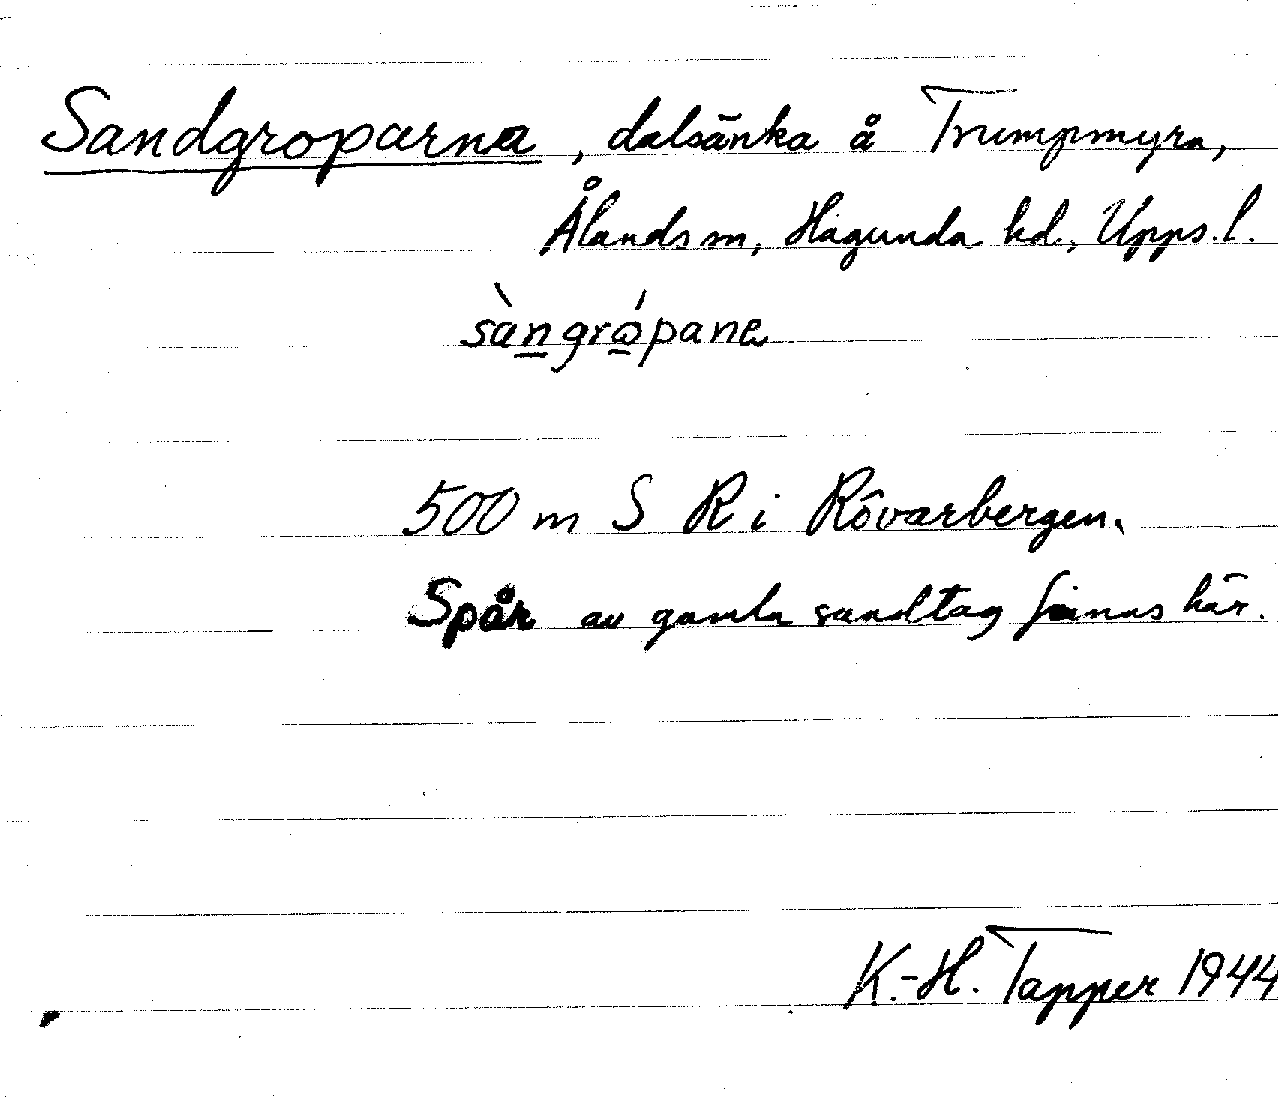 Sandgroparna, dalsänka å Trumpmyra,
Ålands sn, Hagunda hd., Upps. l.
sàngrópane
500 m S R i Rövarbergen.
Spår av gamla sandtag finnas här.
K.-H. Tapper 1944